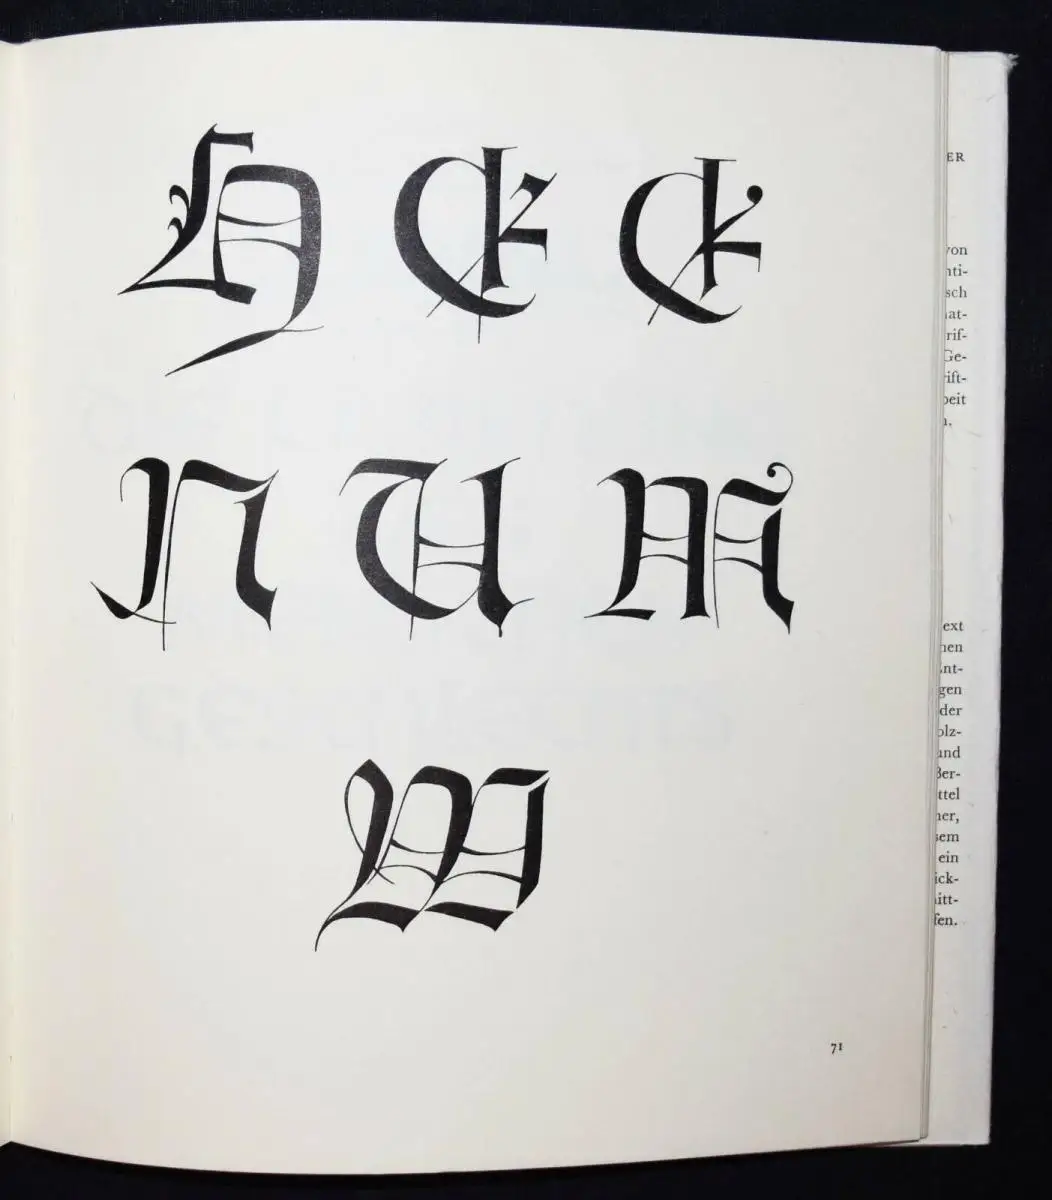 H E E
N U M
W
71
ER
von
nti-
sch
hat-
rif-
Ge-
rift-
beit
n.
ext
nen
Ent-
gen
der
olz-
und
ßer-
ttel
ner,
sem
ein
ick-
nitt-
fen.